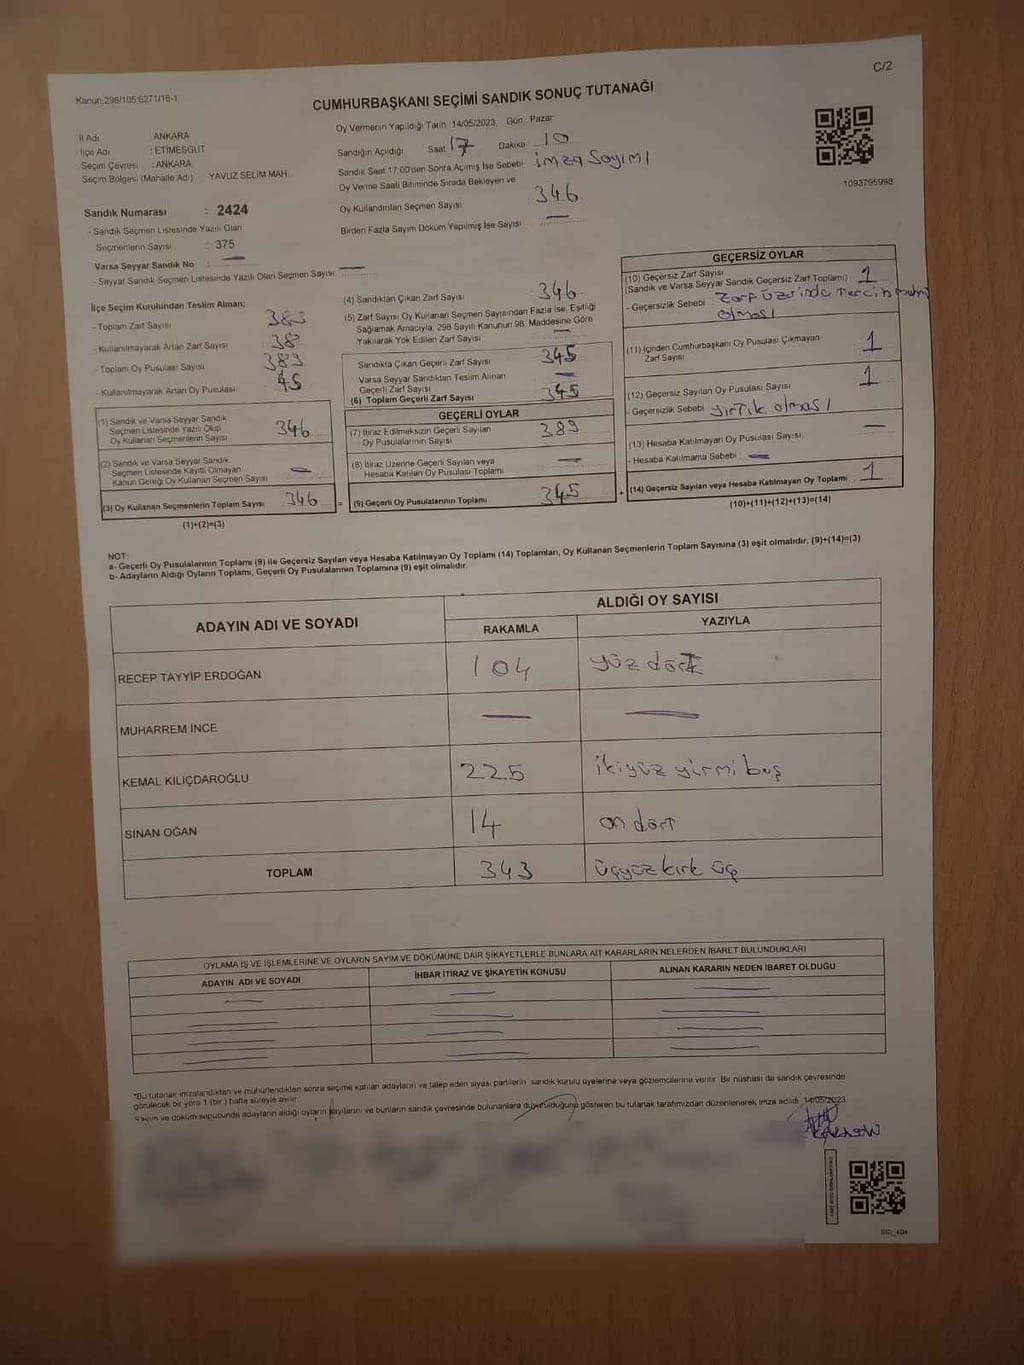 C/2
Kanun:298/105:6271/18-1
CUMHURBAŞKANI SEÇİMİ SANDIK SONUÇ TUTANAĞI
İl Adı : ANKARA
İlçe Adı : ETİMESGUT
Seçim Çevresi : ANKARA
Seçim Bölgesi (Mahalle Adı) YAVUZ SELİM MAH.
Sandık Numarası : 2424
- Sandık Seçmen Listesinde Yazılı Olan
Seçmenlerin Sayısı : 375
Varsa Seyyar Sandık No : —
- Seyyar Sandık Seçmen Listesinde Yazılı Olan Seçmen Sayısı : —
Oy Vermenin Yapıldığı Tarih :14/05/2023 Gün : Pazar
Sandığın Açıldığı Saat 17 Dakika 10
Sandık Saat 17:00'den Sonra Açımış İse Sebebi : imza Sayımı
Oy Verme Saati Bitiminde Sırada Bekleyen ve
Oy Kullandırılan Seçmen Sayısı 346
Birden Fazla Sayım Döküm Yapılmış İse Sayısı —
1093795998
İlçe Seçim Kurulundan Teslim Alınan;
- Toplam Zarf Sayısı 383
- Kullanılmayarak Artan Zarf Sayısı : 38
- Toplam Oy Pusulası Sayısı 389
- Kullanılmayarak Artan Oy Pusulası 45
(1) Sandık ve Varsa Seyyar Sandık
Seçmen Listesinde Yazılı Olup
Oy Kullanan Seçmenlerin Sayısı 346
(2) Sandık ve Varsa Seyyar Sandık
Seçmen Listesinde Kayıtlı Olmayan
Kanun Gereği Oy Kullanan Seçmen Sayısı —
(3) Oy Kullanan Seçmenlerin Toplam Sayısı 346
(1)+(2)=(3)
(4) Sandıktan Çıkan Zarf Sayısı 346
(5) Zarf Sayısı Oy Kullanan Seçmen Sayısından Fazla İse, Eşitliği
Sağlamak Amacıyla; 298 Sayılı Kanunun 98. Maddesine Göre
Yakılarak Yok Edilen Zarf Sayısı —
Sandıkta Çıkan Geçerli Zarf Sayısı 345
Varsa Seyyar Sandıktan Teslim Alınan
Geçerli Zarf Sayısı —
(6) Toplam Geçerli Zarf Sayısı 345
GEÇERLİ OYLAR
(7) İtiraz Edilmeksizin Geçerli Sayılan
Oy Pusulalarının Sayısı 389
(8) İtiraz Üzerine Geçerli Sayılan veya
Hesaba Katılan Oy Pusulası Toplamı —
= (9) Geçerli Oy Pusulalarının Toplamı 345
GEÇERSİZ OYLAR
(10) Geçersiz Zarf Sayısı
(Sandık ve Varsa Seyyar Sandık Geçersiz Zarf Toplamı) 1
- Geçersizlik Sebebi : Zarf üzerinde tercih
olması
(11) İçinden Cumhurbaşkanı Oy Pusulası Çıkmayan
Zarf Sayısı 1
(12) Geçersiz Sayılan Oy Pusulası Sayısı 1
- Geçersizlik Sebebi yırtık olması
(13) Hesaba Katılmayan Oy Pusulası Sayısı —
- Hesaba Katılmama Sebebi —
+ (14) Geçersiz Sayılan veya Hesaba Katılmayan Oy Toplamı 1
(10)+(11)+(12)+(13)=(14)
NOT:
a- Geçerli Oy Pusulalarının Toplamı (9) ile Geçersiz Sayılan veya Hesaba Katılmayan Oy Toplamı (14) Toplamları, Oy Kullanan Seçmenlerin Toplam Sayısına (3) eşit olmalıdır. (9)+(14)=(3)
b- Adayların Aldığı Oyların Toplamı, Geçerli Oy Pusulalarının Toplamına (9) eşit olmalıdır.
ADAYIN ADI VE SOYADI
ALDIĞI OY SAYISI
RAKAMLA YAZIYLA
RECEP TAYYİP ERDOĞAN 104 yüz dört
MUHARREM İNCE — —
KEMAL KILIÇDAROĞLU 225 ikiyüz yirmi beş
SİNAN OĞAN 14 on dört
TOPLAM 343 üçyüz kırk üç
OYLAMA İŞ VE İŞLEMLERİNE VE OYLARIN SAYIM VE DÖKÜMÜNE DAİR ŞİKAYETLERLE BUNLARA AİT KARARLARIN NELERDEN İBARET BULUNDUKLARI
ADAYIN ADI VE SOYADI İHBAR İTİRAZ VE ŞİKAYETİN KONUSU ALINAN KARARIN NEDEN İBARET OLDUĞU
*Bu tutanak imzalandıktan ve mühürlendikten sonra seçime katılan adayların ve talep eden siyasi partilerin sandık kurulu üyelerine veya gözlemcilerine verilir. Bir nüshası da sandık çevresinde
görülecek bir yere 1 (bir) hafta süreyle asılır.
Sayım ve döküm sonucunda adayların aldığı oyların sayılarını ve bunların sandık çevresinde bulunanlara duyurulduğunu gösteren bu tutanak tarafımızdan düzenlenerek imza edildi. 14/05/2023